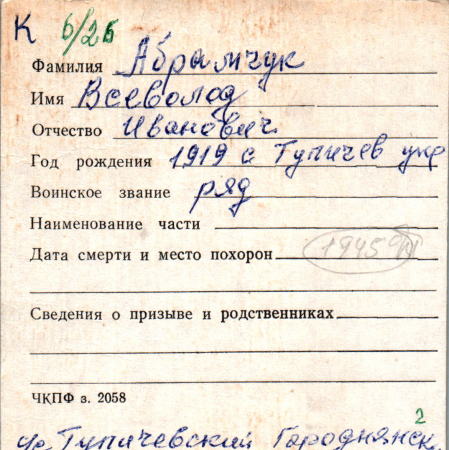 К 6/26
Фамилия Абрамчук
Имя Всеволод
Отчество Иванович
Год рождения 1919 с Тупичев укр
Воинское звание ряд
Наименование части
Дата смерти и место похорон 1945
Сведения о призыве и родственниках
ЧКПФ з. 2058
2
Тупичевский Городнянск